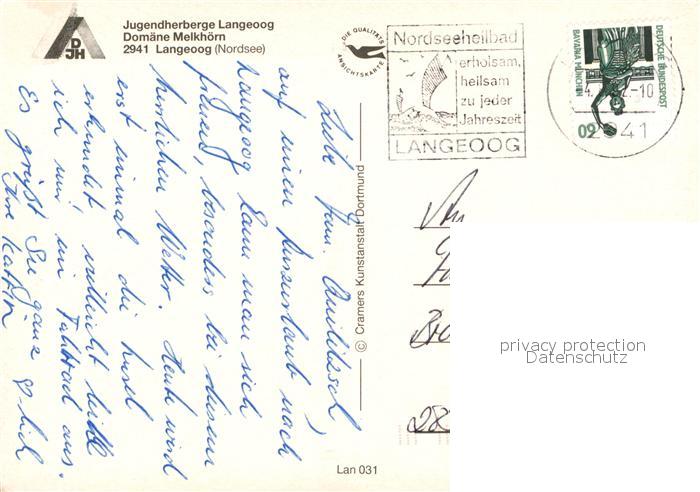 Jugendherberge Langeoog
Domäne Melkhörn
2941 Langeoog (Nordsee)
DJH
DIE QUALITÄTS
ANSICHTSKARTE
Nordseeheilbad
erholsam,
heilsam
zu jeder
Jahreszeit
LANGEOOG
DEUTSCHE BUNDESPOST
BAVARIA MÜNCHEN
60
-10
2941
Liebe Fam.
auf einen Kurzurlaub nach
Langeoog kann man sich
freuen, besonders bei diesem
herrlichen Wetter. Heute wird
erst einmal die Insel
erkundet, vielleicht leihe
ich mir ein Fahrrad aus.
Es grüßt Sie ganz lich
Ihre
© Cramers Kunstanstalt Dortmund
28
privacy protection
Datenschutz
Lan 031